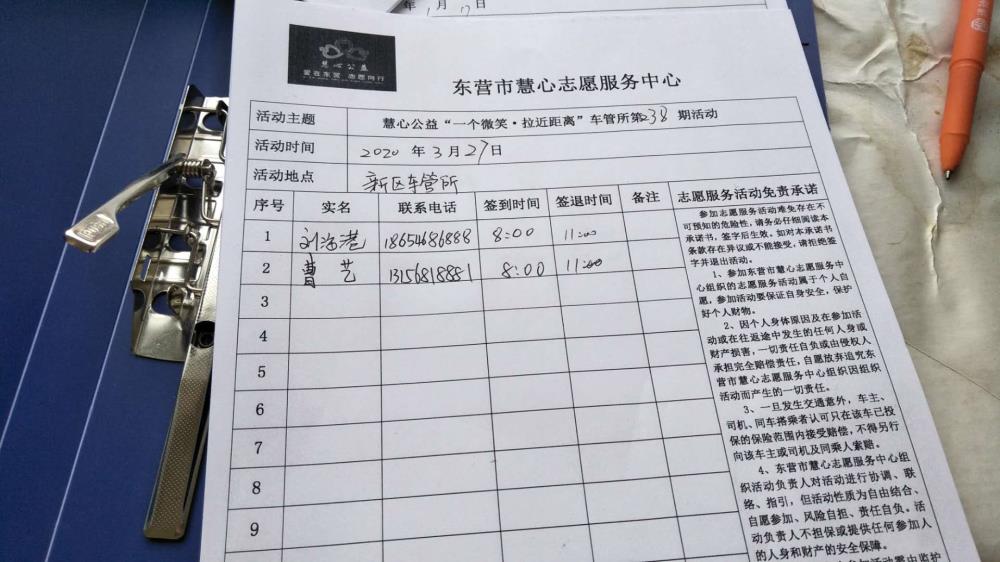 年 1 月 17 日
慧心公益
爱在东营 志愿同行
东营市慧心志愿服务中心
活动主题 慧心公益“一个微笑·拉近距离”车管所第238期活动
活动时间 2020 年 3 月 27 日
活动地点 新区车管所
序号 实名 联系电话 签到时间 签退时间 备注 志愿服务活动免责承诺
1 刘 港 18654686888 8:00 11:00
2 曹艺 13156818881 8:00 11:00
3
4
5
6
7
8
9
参加志愿服务活动难免存在不
可预知的危险性，请务必仔细阅读本
承诺书，签字后生效，如对本承诺书
条款存在异议或不能接受，请拒绝签
字并退出活动。
1、参加东营市慧心志愿服务中
心组织的志愿服务活动属于个人自
愿，参加活动要保证自身安全，保护
好个人财物。
2、因个人身体原因及在参加活
动或在往返途中发生的任何人身或
财产损害，一切责任自负或由侵权人
承担完全赔偿责任，自愿放弃追究东
营市慧心志愿服务中心组织因组织
活动而产生的一切责任。
3、一旦发生交通意外，车主、
司机、同车搭乘者认可只在该车已投
保的保险范围内接受赔偿，不得另行
向该车主或司机及同乘人索赔。
4、东营市慧心志愿服务中心组
织活动负责人对活动进行协调、联
络、指引，但活动性质为自由结合、
自愿参加、风险自担、责任自负。活
动负责人不担保或提供任何参加人
的人身和财产的安全保障。